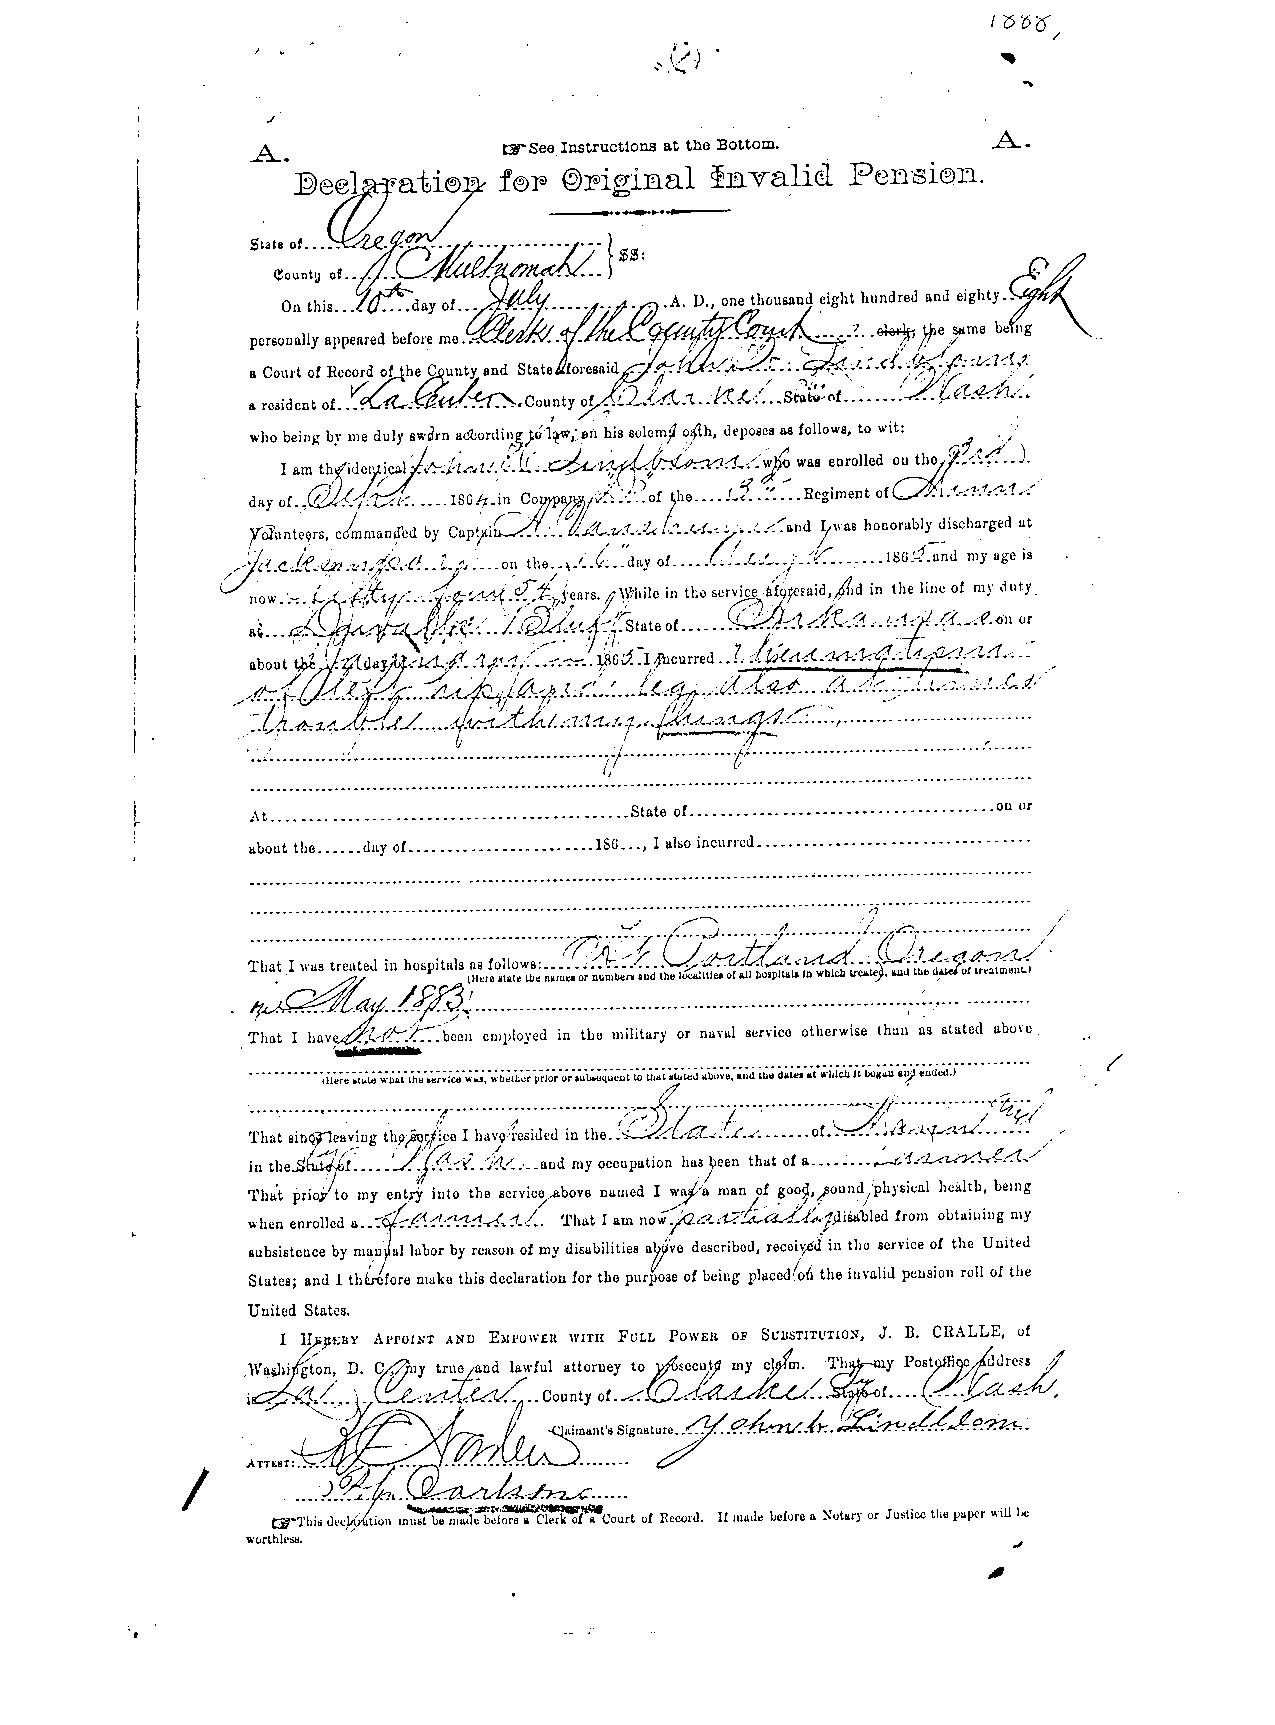 1888,
A. See Instructions at the Bottom. A.
Declaration for Original Invalid Pension.
State of Oregon
County of Multnomah } SS:
On this 10th day of July A. D., one thousand eight hundred and eighty Eight
personally appeared before me Clerk of the County Court clerk, the same being
a Court of Record of the County and State aforesaid John Lindbloms
a resident of La Center County of Clarke State of Wash
who being by me duly sworn according to law, on his solemn oath, deposes as follows, to wit:
I am the identical John Lindblom who was enrolled on the 3rd
day of Sept 1864 in Company of the 3rd Regiment of Minn
Volunteers, commanded by Captain and I was honorably discharged at
Jacksonport on the 16 day of Aug 1865 and my age is
now fifty four 54 years. While in the service aforesaid, and in the line of my duty
at Duvalls Bluff State of Arkansas on or
about the day of 1865 I incurred Rheumatism
of left hip and leg, also at times
trouble with my lungs
At State of on or
about the day of 186 , I also incurred
That I was treated in hospitals as follows: At Portland Oregon
(Here state the names or numbers and the localities of all hospitals in which treated, and the dates of treatment.)
in May 1883.
That I have not been employed in the military or naval service otherwise than as stated above
(Here state what the service was, whether prior or subsequent to that stated above, and the dates at which it began and ended.)
That since leaving the service I have resided in the State of Minn and
in the State of Wash and my occupation has been that of a farmer
That prior to my entry into the service above named I was a man of good, sound physical health, being
when enrolled a farmer. That I am now partially disabled from obtaining my
subsistence by manual labor by reason of my disabilities above described, received in the service of the United
States; and I therefore make this declaration for the purpose of being placed on the invalid pension roll of the
United States.
I HEREBY APPOINT AND EMPOWER WITH FULL POWER OF SUBSTITUTION, J. B. CRALLE, of
Washington, D. C. my true and lawful attorney to prosecute my claim. That my Postoffice Address
is La Center County of Clarke State of Wash.
Claimant's Signature John Lindblom
ATTEST:
Carlson
This declaration must be made before a Clerk of a Court of Record. If made before a Notary or Justice the paper will be
worthless.